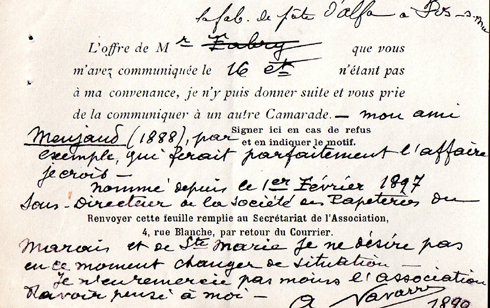 la fab. de pâte d'alfa à Pts-s-mer
L'offre de M r Fabry que vous
m'avez communiquée le 16 ct n'étant pas
à ma convenance, je n'y puis donner suite et vous prie
de la communiquer à un autre Camarade. — mon ami
Menjaud (1888), par
Signer ici en cas de refus
et en indiquer le motif.
exemple, qui ferait parfaitement l'affaire
je crois —
Nommé depuis le 1er Février 1897
Sous-Directeur de la Société des Papeteries du
Renvoyer cette feuille remplie au Secrétariat de l'Association,
4, rue Blanche, par retour du Courrier.
Marais et de Ste Marie je ne désire pas
en ce moment changer de situation —
Je n'en remercie pas moins l'association
d'avoir pensé à moi —
A Navarre 1890